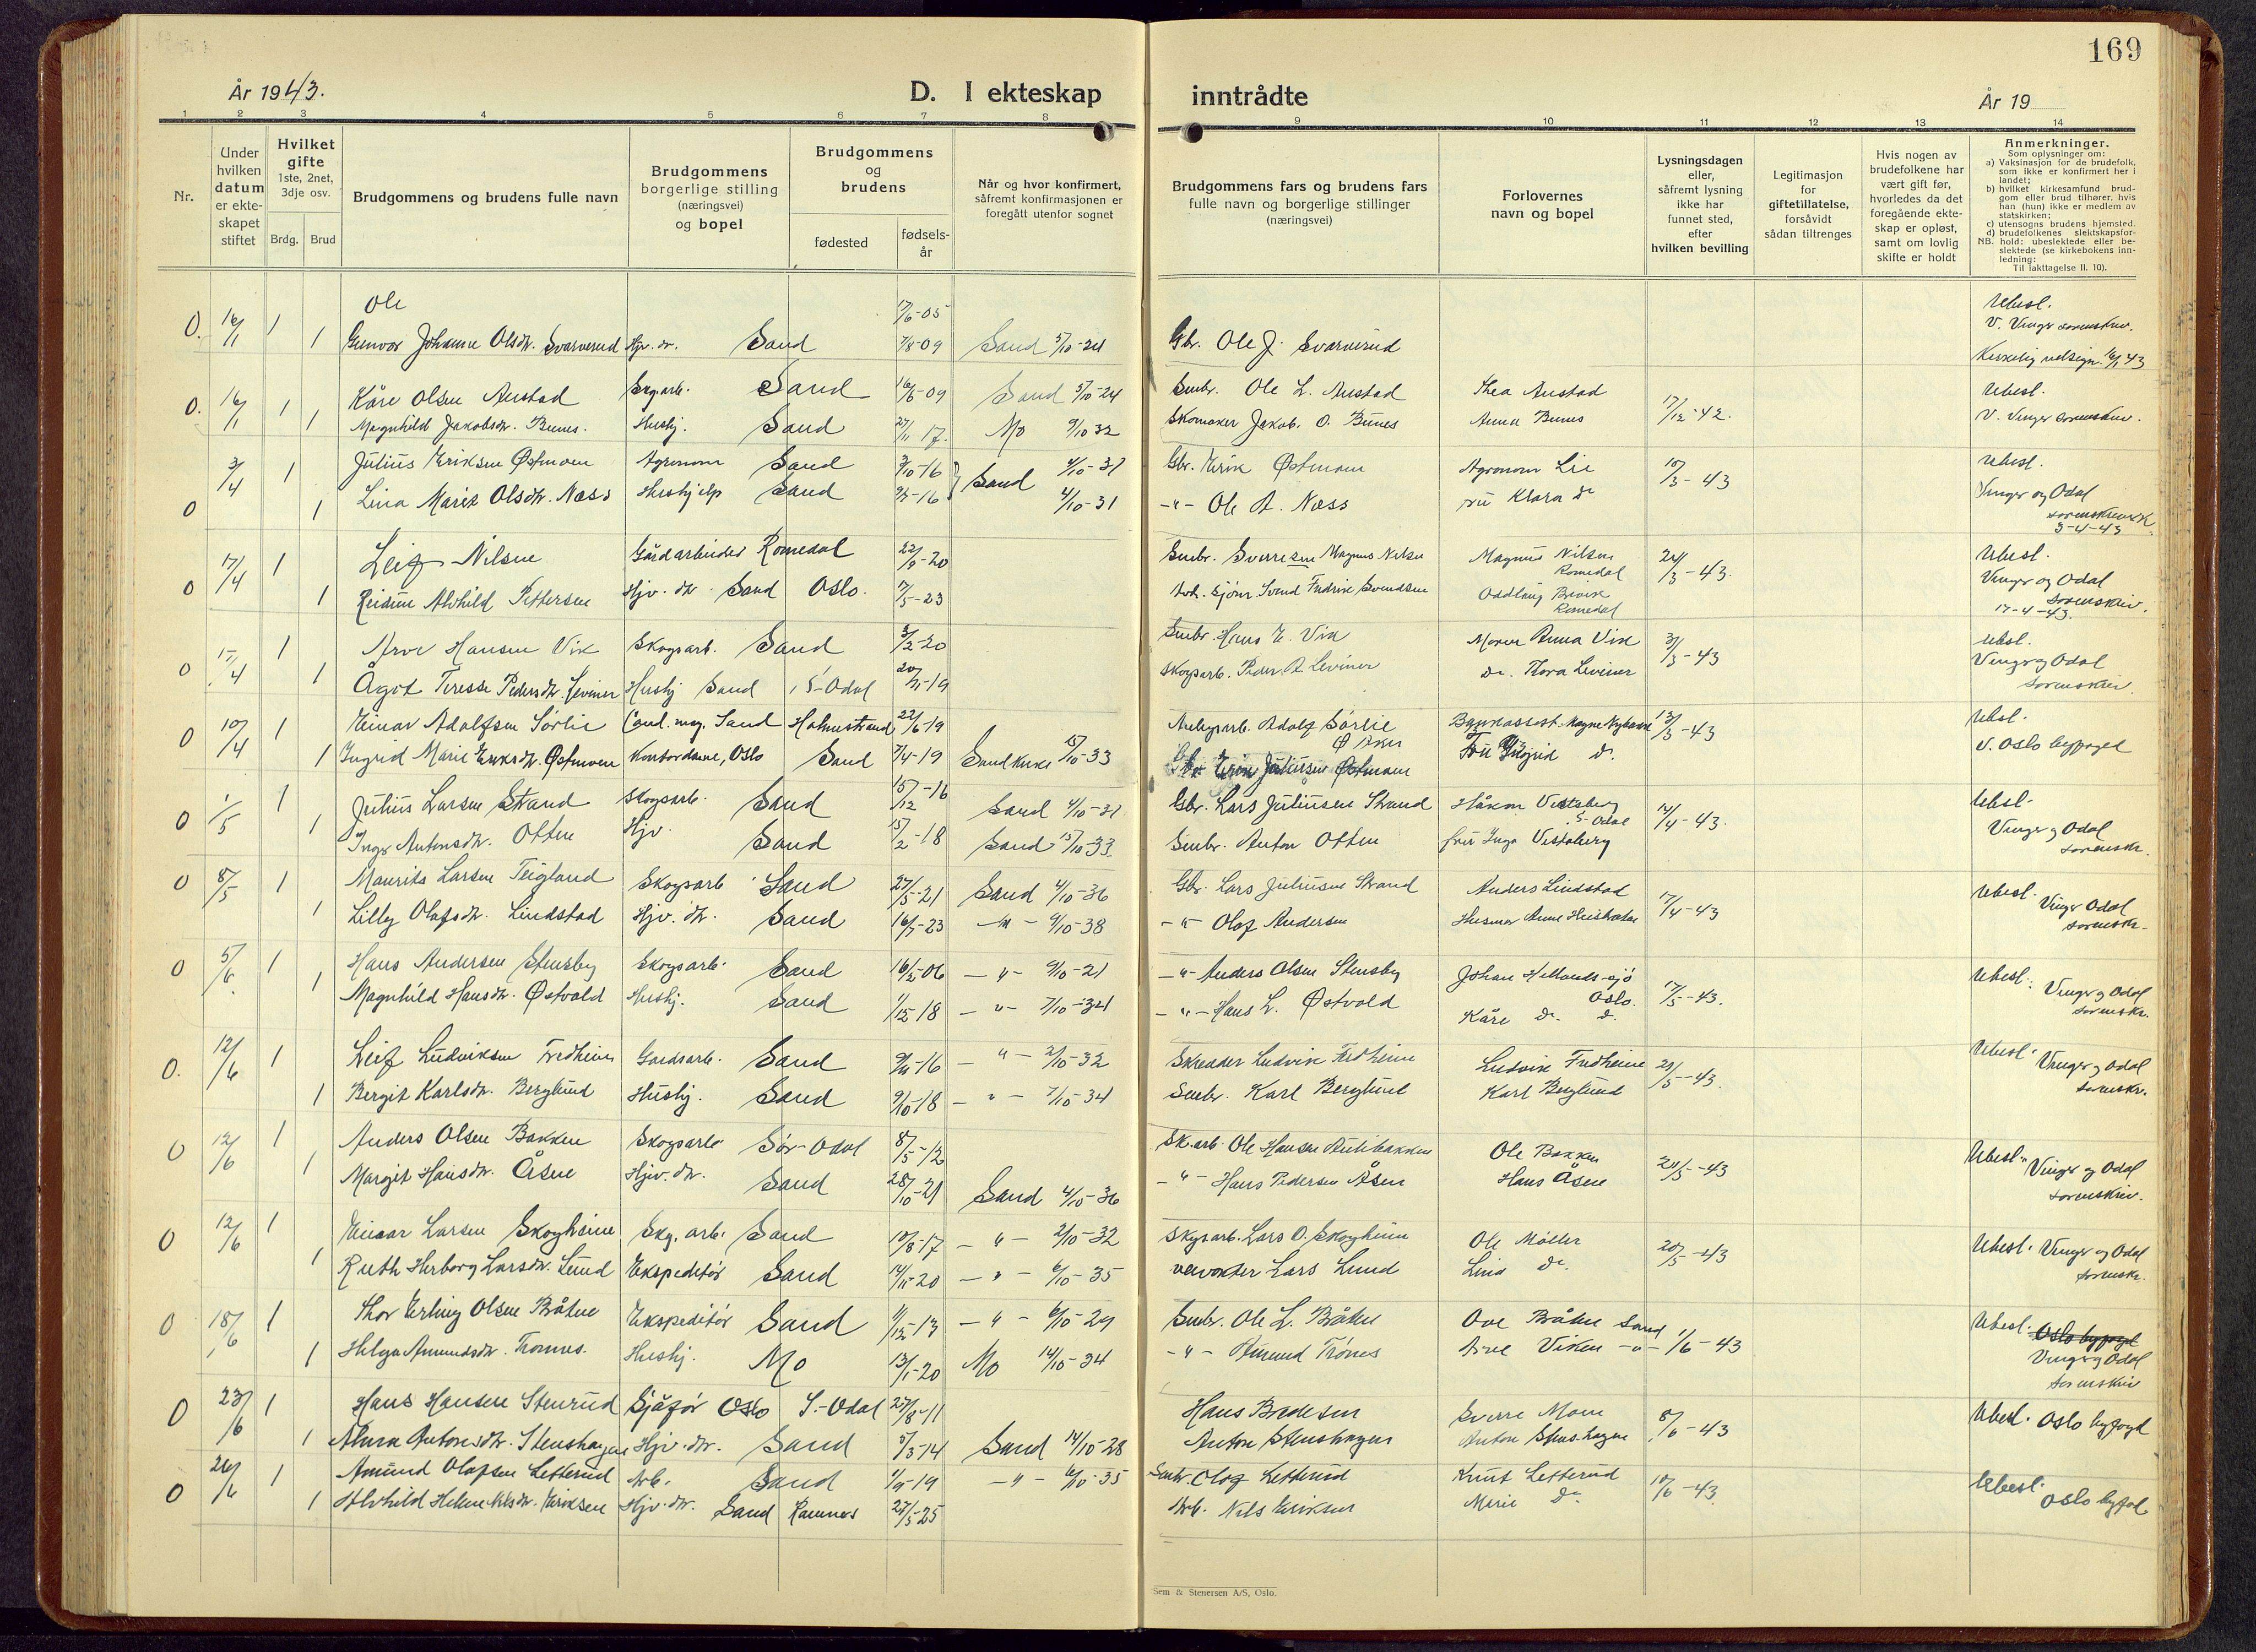 169
År 1943.
D. I ekteskap inntrådte
År 19
1 2 3 4 5 6 7 8 9 10 11 12 13 14
Nr.
Under hvilken datum er ekteskapet stiftet
Hvilket gifte 1ste, 2net, 3dje osv.
Brdg. Brud
Brudgommens og brudens fulle navn
Brudgommens borgerlige stilling (næringsvei) og bopel
Brudgommens og brudens
fødested
fødsels-år
Når og hvor konfirmert, såfremt konfirmasjonen er foregått utenfor sognet
Brudgommens fars og brudens fars fulle navn og borgerlige stillinger (næringsvei)
Forlovernes navn og bopel
Lysningsdagen eller, såfremt lysning ikke har funnet sted, efter hvilken bevilling
Legitimasjon for giftetillatelse, forsåvidt sådan tiltrenges
Hvis nogen av brudefolkene har vært gift før, hvorledes da det foregående ekteskap er opløst, samt om lovlig skifte er holdt
Anmerkninger.
Som oplysninger om:
a) Vaksinasjon for de brudefolk, som ikke er konfirmert her i landet;
b) hvilket kirkesamfund brudgom eller brud tilhører, hvis han (hun) ikke er medlem av statskirken;
c) utensogns brudens hjemsted.
d) brudefolkenes slektskapsfor-
NB. hold: ubeslektede eller beslektede (se kirkebokens innledning:
Til iakttagelse II. 10).
O. 16/1 1 Ole 17/6-05 Ubesl.
1 Gunvor Johanne Olsdtr. Svarverud Hjv. dr. Sand 7/8-09 Sand 5/10-24 Gbr. Ole J. Svarverud V. Vinger sorenskriv.
Kirkelig velsign. 16/1 43
O. 16/1 1 Kåre Olsen Austad Skogarb. Sand 16/6-09 Sand 5/10-24 Smbr. Ole L. Austad Thea Austad 17/12-42. Ubesl.
1 Magnhild Jakobsdtr. Bunes. Hushj. Sand 27/11 17. Mo 9/10 32 Skomaker Jakob. O. Bunes Anna Bunes V. Vinger sorenskriv.
O 3/4 1 Julius Eriksen Østmoen Agronom Sand 3/10-16 Sand 4/10-31 Gbr. Erik Østmoen Agronom Lie 10/3-43 Ubesl.
1 Lina Marie Olsdtr. Næss Hushjelp Sand 9/5-16 4/10-31 -"- Ole A. Næss fru Klara do Vinger og Odal
sorenskriverk 3-4-43
O 17/4 1 Leif Nilsen Gårdarbeider Romedal 22/9-20 Smbr. Sverresen Magnus Nilsen Magnus Nilsen Romedal 24/3-43. Ubesl.
1 Reidun Alvhild Pettersen Hjv. dr. Sand Oslo. 7/5-23 Arb. Sjöm Svend Fredrik Svendsen Oddlaug Romedal Vinger og Odal
sorenskriv. 17-4-43.
O 17/4 1 Arve Hansen Vik Skogsarb. Sand 3/2-20 Smbr. Hans E. Vik Moren Anna Vik 3/3-43 Ubesl.
1 Ågot Teresse Pedersdtr. Leviner Hushj Sand S-Odal 20/11-19 Skogsarb. Peder A Leviner do. Thora Leviner Vinger og Odal sorenskriv.
O 10/4 1 Einar Adolfsen Sørlie Cand. mag. Sand Holmestrand 22/6-19 Anlegsarb. Adolf Sørlie Ø Aker Bankassist. Magne Nyhavn 13/3-43 Ubesl.
1 Ingrid Marie Eriksdtr. Østmoen Kontordame, Oslo Sand 7/4-19 Sand kirke 15/10-33 Gbr Erik Juliussen Østmoen Fru Ingrid do. V. Oslo byfogd
O 1/5 1 Julius Larsen Strand Skogsarb. Sand 15/12-16 Sand 4/10-31 Gbr. Lars Juliussen Strand Håkon Vestaberg S-Odal 14/4-43. Ubesl.
1 Inger Antonsdtr. Often Hjv. Sand 15/2-18 Sand 15/10-33 Smbr. Anton Often fru Inga Vestaberg Vinger og Odal sorenskr.
O 8/5 1 Maurits Larsen Teigland Skogsarb Sand 27/5-21 Sand 4/10-36 Gbr. Lars Juliussen Strand Anders Lindstad 17/4-43 Ubesl.
1 Lilly Olafsdtr. Lindstad Hjv. dr. Sand 16/7-23 -"- 9/10-38 -"- Olaf Andersen Husmor Anne Vinger Odal sorenskr.
O 5/6 1 Hans Andersen Stensby Skogsarb. Sand 16/5-06 -"- 9/10-21 -"- Anders Olsen Stensby Johan Hellandsjö Oslo. 17/5-43. Ubesl.
1 Magnhild Hansdtr. Østvold Hushj. Sand 1/12 18 -"- 7/10-34 -"- Hans L. Østvold Kåre do. do. Vinger og Odal sorenskr.
O. 12/6 1 Leif Ludviksen Fredheim Gardsarb. Sand 9/11-16 -"- 2/10-32 Skredder Ludvik Fredheim Ludvik Fredheim 29/5-43. Ubesl.
1 Bergit Karlsdtr. Berglund Hushj. Sand 9/10 18 -"- 7/10-34 Smbr. Karl Berglund Karl Berglund Vinger og Odal sorenskr.
O 12/6 1 Anders Olsen Bakken Skogsarb Sør-Odal 8/5-12 Sk.arb. Ole Hansen Ole Bakken 20/5-43 Ubesl.
1 Margit Hansdtr. Åsen Hjv. dr. Sand 28/10-21 Sand 4/10-36 -"- Hans Pedersen Åsen Hans Åsen Vinger og Odal sorenskriv.
O 12/6 1 Einar Larsen Skogheim Skg. arb. Sand 10/8-17 -"- 2/10-32 Skgsarb. Lars O. Skogheim Ole Möller 20/5-43 Ubesl.
1 Ruth Herborg Larsdtr. Lund Ekspeditör Sand 14/11-20 -"- 6/10-35 veivokter Lars Lund Lina do. Vinger og Odal sorenskr.
O 18/6 1 Thor Erling Olsen Bråten Ekspeditör Sand 9/12-13 -"- 6/10-29 Smbr. Ole L. Bråten Ove Bråten Sand 1/6-43 Ubesl. Oslo byfogd
1 Helga Amundsdtr. Trönnes. Hushj. Mo 13/1-20 Mo 14/10-34 -"- Amund Trönes Arve Viken -"- Vinger og Odal sorenskriv
O 23/6 1 Hans Hansen Stenrud Sjåför Oslo S.-Odal 27/8-11 Hans Bredesen Sverre Moen 8/6-43 Ubesl. Oslo byfogd
1 Alma Antonsdtr. Stenshagen Hjv. dr. Sand 5/3-14 Sand 14/10-28 Anton Stenshagen Anton Stenshagen
O 26/6 1 Amund Olafsen Letterud Arb. Sand 1/9-19 -"- 6/10-35 Smbr Olaf Letterud Knut Letterud 10/6-43. Ubesl.
1 Alvhild Helene Nilsdtr. Eriksen Hjv. dr. Sand Ramnes 27/5-25 Arb. Nils Eriksen Marie do Oslo byfod.
Sem & Stenersen A/S, Oslo.